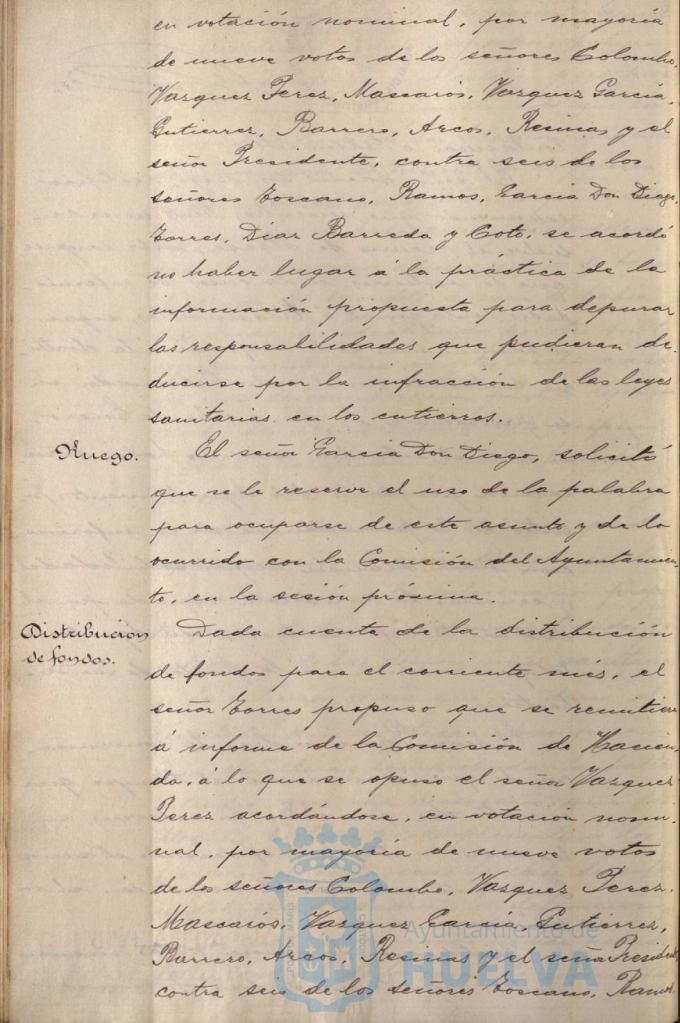 en votación nominal, por mayoría
de nueve votos de los señores Colombo,
Vazquez Perez, Mascarós, Vazquez García,
Gutierrez, Barrero, Arcos, Resinas y el
señor Presidente, contra seis de los
señores Toscano, Ramos, García Don Diego,
Torres, Diaz Barreda y Coto, se acordó
no haber lugar á la práctica de la
información propuesta para depurar
las responsabilidades que pudieran de-
ducirse por la infracción de las leyes
sanitarias en los entierros.
Ruego.
El señor García Don Diego, solicitó
que se le reserve el uso de la palabra
para ocuparse de este asunto y de lo
ocurrido con la Comisión del Ayuntamien-
to, en la sesión próxima.
Distribución
de fondos.
Dada cuenta de la distribución
de fondos para el corriente més, el
señor Torres propuso que se remitiera
á informe de la Comisión de Hacien-
da, á lo que se opuso el señor Vazquez
Perez acordándose, en votación nomi-
nal, por mayoría de nueve votos
de los señores Colombo, Vazquez Perez,
Mascarós, Vazquez García, Gutierrez,
Barrero, Arcos, Resinas y el señor Presidente,
contra seis de los señores Toscano, Ramos,
Ayuntamiento de
HUELVA